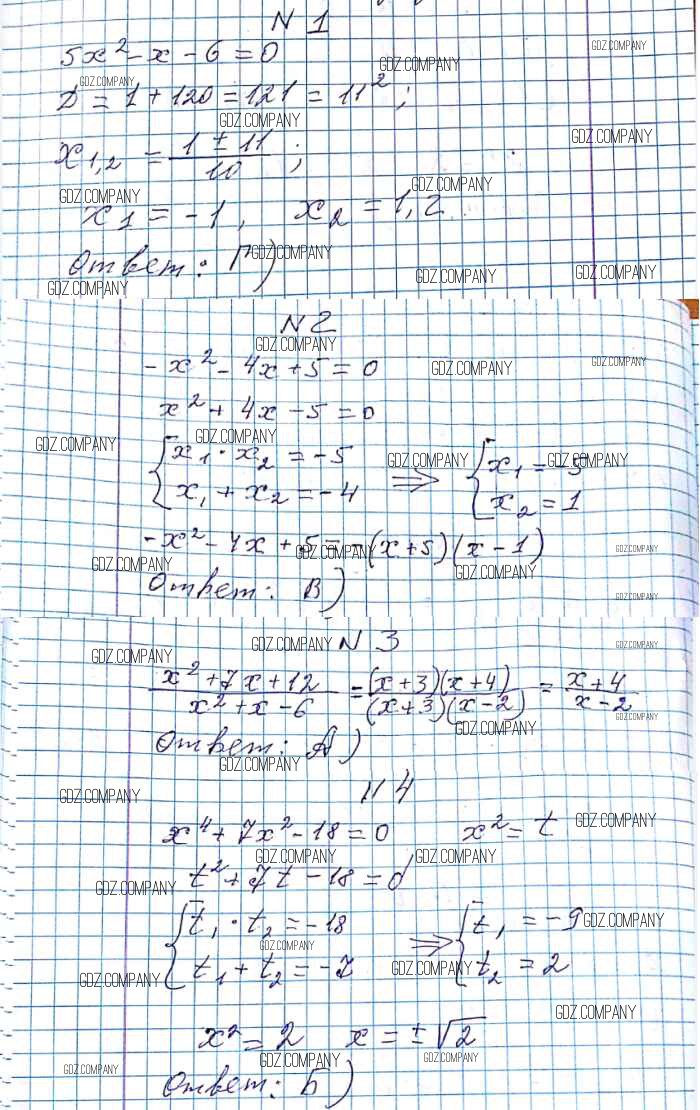 N 1
5x² - x - 6 = 0
D = 1 + 120 = 121 = 11²;
x₁,₂ = (1 ± 11)/10;
x₁ = -1, x₂ = 1,2
Ответ: Г)
N 2
-x² - 4x + 5 = 0
x² + 4x - 5 = 0
{ x₁ · x₂ = -5 ⇒ { x₁ = -5
x₁ + x₂ = -4 x₂ = 1
-x² - 4x + 5 = -(x + 5)(x - 1)
Ответ: В)
N 3
(x² + 7x + 12)/(x² + x - 6) = (x + 3)(x + 4)/(x + 3)(x - 2) = (x + 4)/(x - 2)
Ответ: А)
N 4
x⁴ + 7x² - 18 = 0 x² = t
t² + 7t - 18 = 0
{ t₁ · t₂ = -18 ⇒ { t₁ = -9
t₁ + t₂ = -7 t₂ = 2
x² = 2 x = ±√2
Ответ: Б)
GDZ.COMPANY